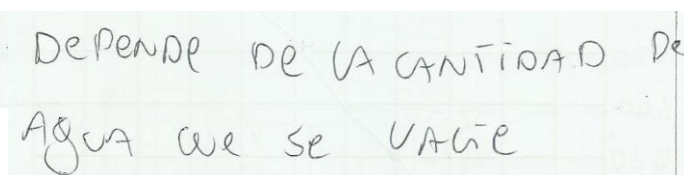 DEPENDE DE LA CANTIDAD DE
AGUA QUE SE VACIE